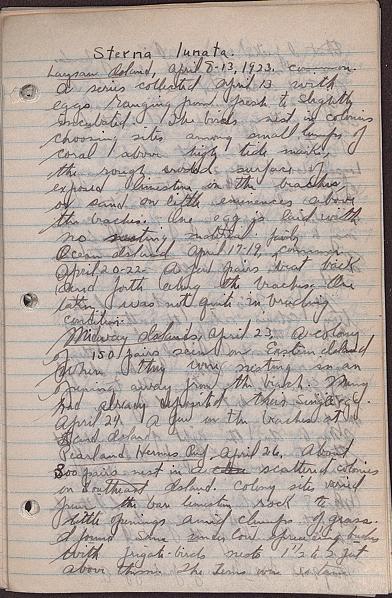 Sterna lunata.
Laysan Island, April 8-13, 1923. common.
A series collected April 13 with
eggs ranging from fresh to slightly
incubated. The birds nest in colonies
choosing sites among small lumps of
coral above high tide mark,
the rough eroded surface of
exposed limestone in the beaches
or sand on little eminences above
the beaches. One egg is laid with
no nesting material. fairly
Ocean Island April 17-19, common.
April 20-22. A few pairs beat back
and forth along the beaches. The
latter was not quite in breeding
condition.
Midway Islands, April 23. A colony
of 150 pairs seen on Eastern Island
where they were nesting in an
opening away from the beach. Many
had already deposited their single egg.
April 24. A few on the beaches at
Sand Island.
Pearl and Hermes Reef, April 26. About
300 pairs nest in scattered colonies
on Southeast Island. Colony sites varied
from the bare limestone rock to
little openings amid clumps of grass.
I found some under low spreading bushes
with frigate-birds nests 1 1/2 to 2 feet
above them. The terns were so tame